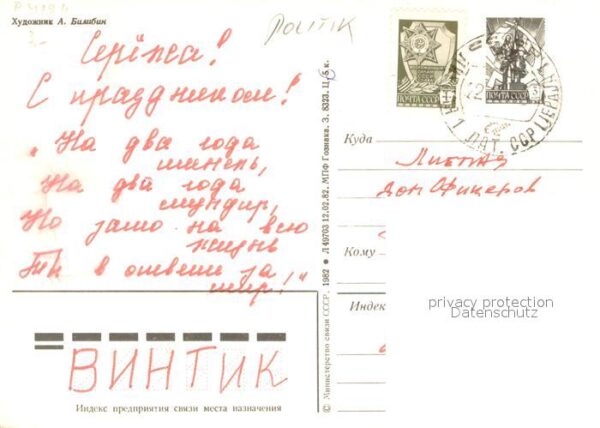 Художник А. Билибин
POLITIK
Серёжа!
С праздником!
"На два года
шинель,
На два года
мундир,
Но зато на всю
жизнь
Ты в ответе за
мир!"
ВИНТИК
Индекс предприятия связи места назначения
© Министерство связи СССР. 1982 ◆ Л 49703 12.02.82. МПФ Гознака. З. 8323. Ц. 5 к.
ПОЧТА СССР
ПОЧТА СССР
ЛАТ. ССР
Куда
Лиепая
дом Офицеров
Кому
Индекс
privacy protection
Datenschutz